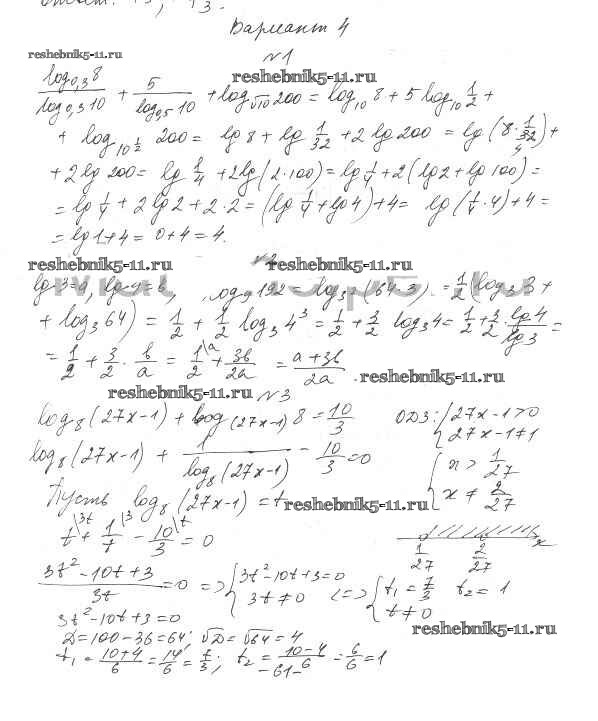 Вариант 4
reshebnik5-11.ru
№1
reshebnik5-11.ru
log₀,₃8/log₀,₃10 + 5/log₀,₅10 + log_√10 200 = log₁₀ 8 + 5 log₁₀ 1/2 +
+ log_10^(1/2) 200 = lg 8 + lg 1/32 + 2 lg 200 = lg (8 · 1/32) +
+ 2 lg 200 = lg 1/4 + 2 lg (2 · 100) = lg 1/4 + 2 (lg 2 + lg 100) =
= lg 1/4 + 2 lg 2 + 2 · 2 = (lg 1/4 + lg 4) + 4 = lg (1/4 · 4) + 4 =
= lg 1 + 4 = 0 + 4 = 4.
reshebnik5-11.ru
№2
reshebnik5-11.ru
lg 3 = a, lg 4 = b, log₉ 192 = (64 · 3) = 1/2 (log₃ 3 +
+ log₃ 64) = 1/2 + 1/2 log₃ 4³ = 1/2 + 3/2 log₃ 4 = 1/2 + 3/2 · lg 4/lg 3 =
= 1/2 + 3/2 · b/a = 1/2 \a + 3b/2a = a + 3b/2a .
reshebnik5-11.ru
reshebnik5-11.ru
№3
log₈ (27x - 1) + log_(27x - 1) 8 = 10/3 ОДЗ: { 27x - 1 > 0
27x - 1 ≠ 1
log₈ (27x - 1) + 1/log₈ (27x - 1) - 10/3 = 0 { x > 1/27
x ≠ 2/27
Пусть log₈ (27x - 1) = t
reshebnik5-11.ru
t \3t + 1/t \3 - 10/3 \t = 0
1/27 2/27 x
3t² - 10t + 3/3t = 0 => { 3t² - 10t + 3 = 0 <=> { t₁ = 7/3 t₂ = 1
3t ≠ 0 t ≠ 0
3t² - 10t + 3 = 0
reshebnik5-11.ru
D = 100 - 36 = 64; √D = √64 = 4
t₁ = 10 + 4/6 = 14/6 = 7/3; t₂ = 10 - 4/6 = 6/6 = 1